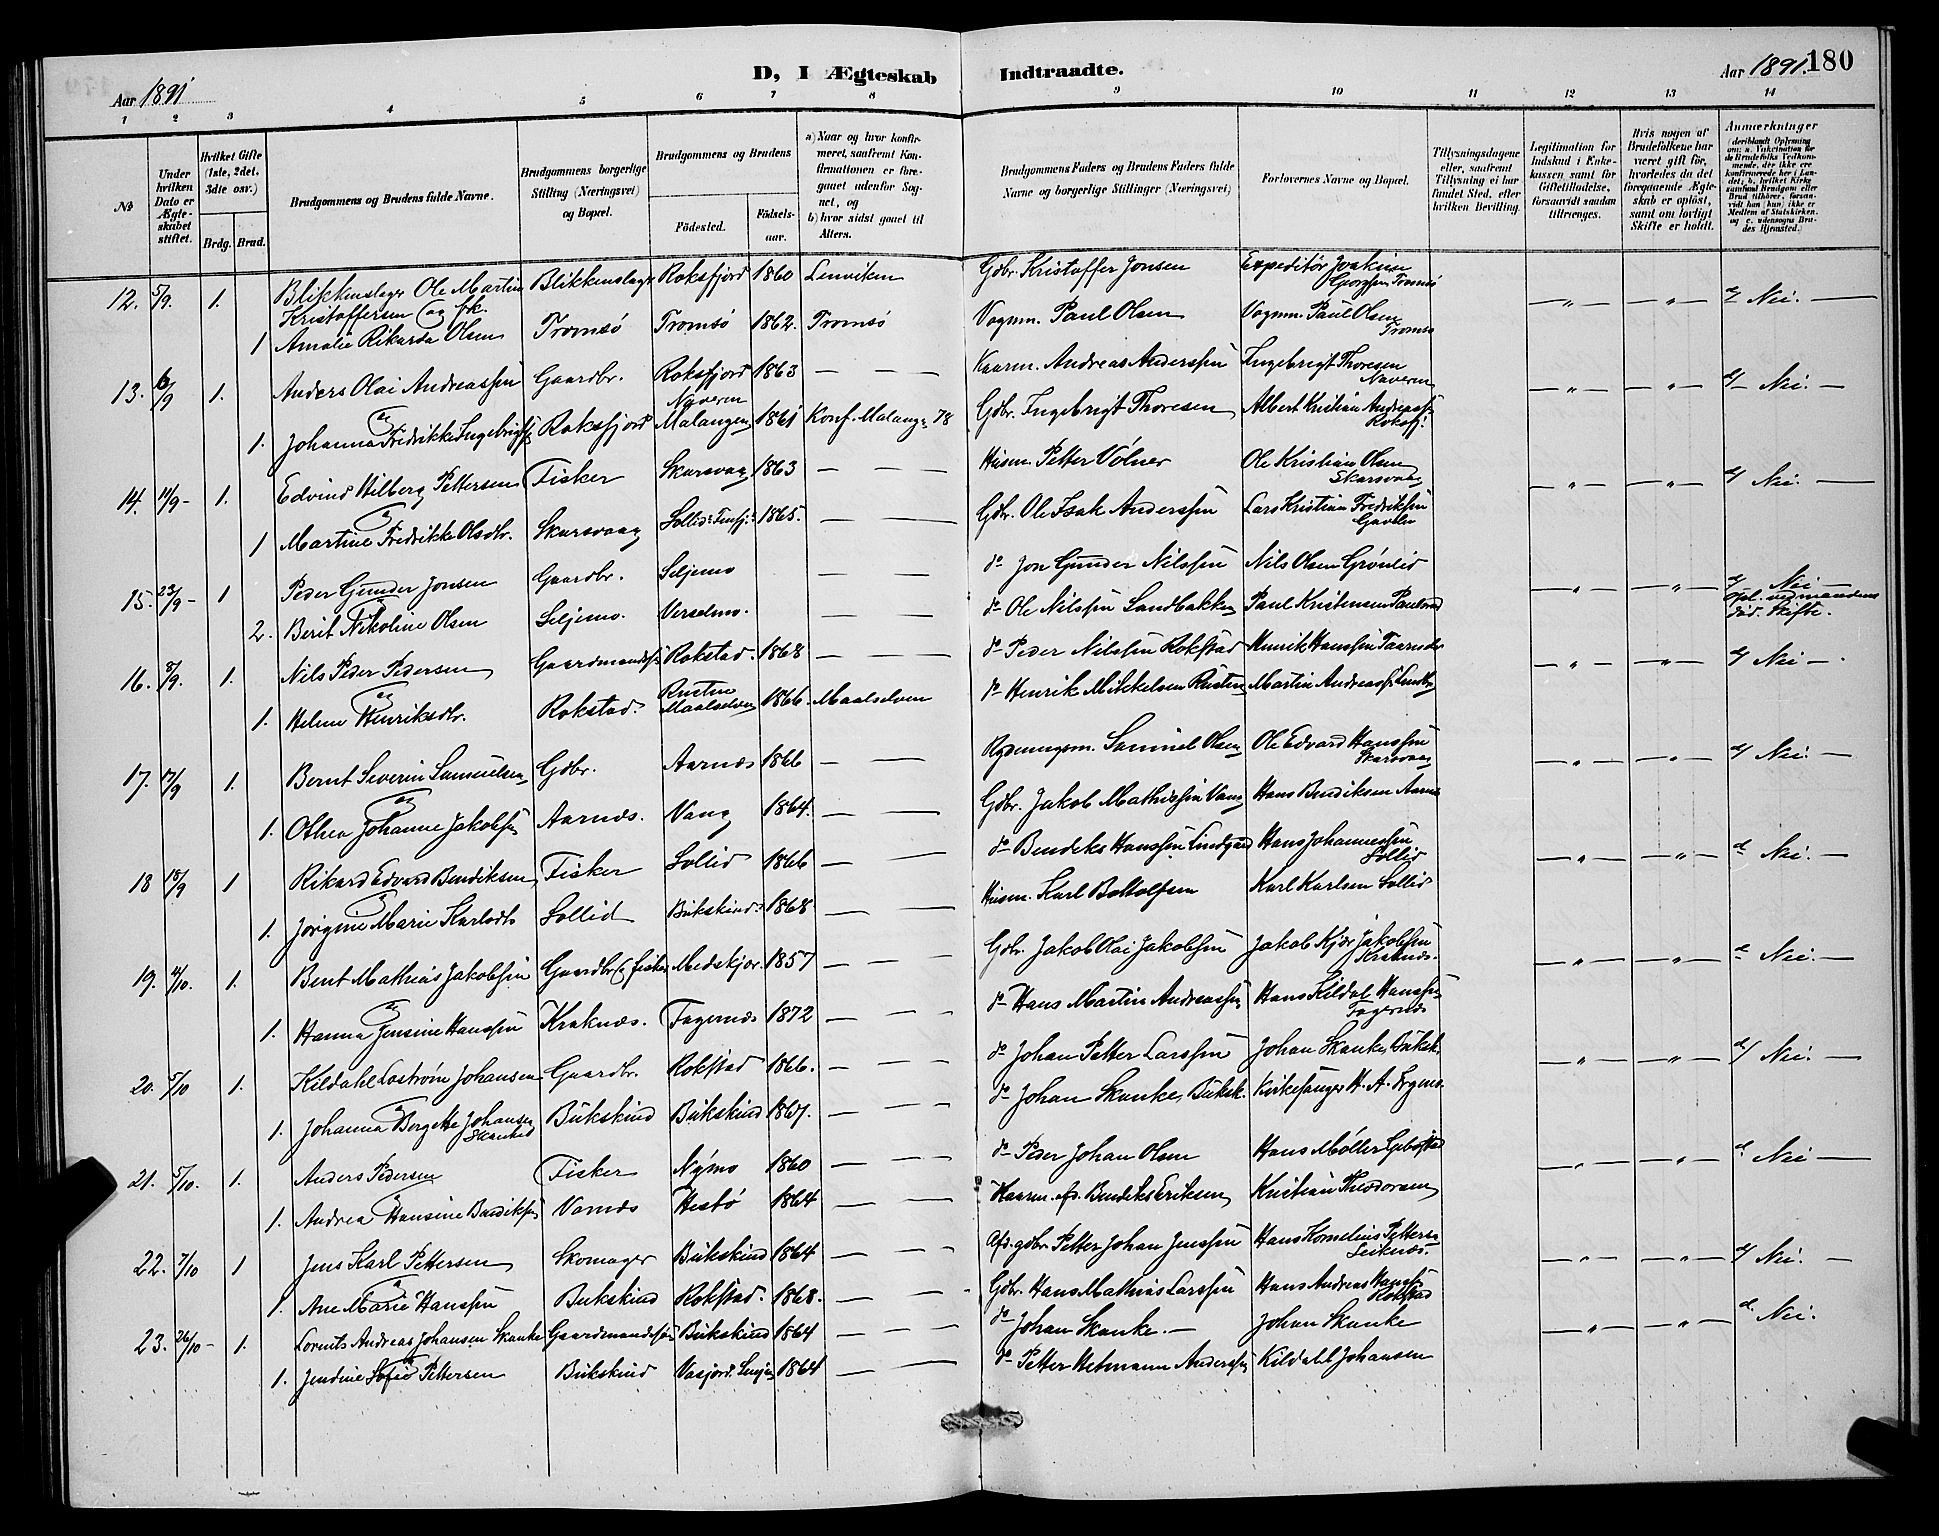 180
D, I Ægteskab Indtraadte.
Aar 1891
Aar 1891.
1 2 3 4 5 6 7 8 9 10 11 12 13 14
No
Under hvilken Dato er Ægteskabet stiftet.
Hvilket Gifte (1ste, 2det, 3die osv.)
Brdg. Brud.
Brudgommens og Brudens fulde Navne.
Brudgommens borgerlige Stilling (Næringsvei) og Bopæl.
Brudgommens og Brudens
Födested.
Födselsaar.
a) Naar og hvor konfirmeret, saafremt Konfirmationen er foregaaet udenfor Sognet, og
b) hvor sidst gaaet til Alters.
Brudgommens Faders og Brudens Faders fulde Navne og borgerlige Stillinger (Næringsvei)
Forlovernes Navne og Bopæl.
Tillysningsdagene eller, saafremt Tillysning ei har fundet Sted, efter hvilken Bevilling.
Legitimation for Indskud i Enkekassen samt for Giftetilladelse, forsaavidt saadan tiltrænges.
Hvis nogen af Brudefolkene har været gift før, hvorledes da det foregaaende Ægteskab er opløst, samt om lovligt Skifte er holdt.
Anmærkninger (deriblandt Oplysning om: a. Vakcination for de Brudefolks Vedkommende, der ikke ere konfirmerede her i Landet, b. hvilket Kirkesamfund Brudgom eller Brud tilhører, forsaavidt han (hun) ikke er Medlem af Statskirken, og c. udensogns Brudes Hjemsted.)
12. 5/9. 1. Blikkenslager Ole Martin Kristoffersen og fk. Blikkenslager Roksfjord 1860 Lenviken Gdbr. Kristoffer Jonsen Expeditör Joakim Tromsö — " — — " — Nei. —
1 Amalie Rikarda Olsen Tromsö Tromsö 1862. Tromsö Vognm. Paul Olsen Vognm. Paul Olsen Tromsö
13. 6/9 1. Anders Olai Andreassen Gaardbr. Roksfjord 1863 — — — Kaarm. Andreas Anderssen Ingebrigt Thoresen Naveren — " — — " — Nei. —
og
1. Johanna Fredrikke Ingebrigts Roksfjord Naveren Malangen 1861 Konf. Malang. 78 Gdbr. Ingebrigt Thoresen Albert Kristian Andreass. Roksfj.
14. 11/9 - 1. Edvind Hilberg Pettersen Fisker Skarsvaag 1863 — — — Husm. Petter Völner Ole Kristian Olsen Skarsvaag — " — — " — Nei. —
og
1 Martine Fredrikke Olsdtr. Skarsvaag Sollid 1865. — — Gdbr. Ole Isak Anderssen Lars Kristian Fredriksen
15. 23/9 - 1 Peder Gunder Jonsen Gaardbr. Seljemo — — do Jon Gunder Nilssen Nils Olsen Grönlid — " — — " — Nei —
og
2. Berit Nikoline Olsen Seljemo. Verselmo. — — do Ole Nilssen Sandbakken Paul Kristensen opl. ved mandens död. Skifte.
16. 8/9. 1. Nils Peder Pedersen Gaardmandss. Rokstad. 1868 — — do Peder Nilssen Rokstad Henrik Hanssen — " — — " — Nei —.
og
1. Helene Henriksdtr. Rokstad. Rusten Maalselven 1866. Maalselven do Henrik Mikkelsen Rusten Martin Andreass.
17. 17/9 1. Bernt Severin Samuelsen Gdbr. Aarnes 1866 — — Samuel Olsen Ole Edvard Hanssen Skarsvaag — " — — " — Nei. —
og
1. Othea Johanne Jakobsen Aarnes. Vang 1864. — — Gdbr. Jakob Mathiassen Vang Hans Bendiksen Aarnes
18 18/9 1 Rikard Edvard Bendiksen Fisker Sollid 1866 — — do Bendiks Hanssen Hans Johannessen Sollid — " — — " — Nei. —
og
1. Jörgine Marie Karlsdtr Sollid Bukskind 1868 — — Husm. Karl Bottolfsen Karl Karlsen Sollid
19. 4/10. 1. Bent Mathias Jakobsen Gaardbr. & fisker Medskjær. 1857 — — Gdbr. Jakob Olai Jakobsen Jakob Kjær Jakobsen Kraknes. — " — — " — Nei. —
og
1. Hanna Jensine Hanssen Kraknes. Fagernes 1872 — — do Hans Martin Andreassen Hans Kildal Hanssen Fagernes
20. 5/10 1. Kildahl Johansen Gaardbr. Rokstad 1866. — — do Johan Petter Larssen Johan Skanke Buksk. — " — — " — Nei. —
og
1. Johanna Bergette Johansen Skanke Bukskind Bukskind 1867. — — do Johan Skanke, Buksk. Kirkesanger H. A.
21. 5/10. 1. Anders Pedersen Fisker Nymo 1860 — — do Peder Johan Olsen Hans Möller Gibostad — " — — " — Nei —
og
1. Andrea Hansine Bendiks. Varnes Hestö 1864 — — Kaarm. afd. Bendiks Eriksen Kristian Theodorsen
22. 7/10 1 Jens Karl Pettersen Skomager Bukskind 1864 — — Afd. gdbr. Petter Johan Jenssen Hans Kornelius Petters. Leiknes. — " — — " — Nei. —
og
1. Ane Marie Hanssen Bukskind Rokstad. 1868. — — Gdbr. Hans Mathias Larssen Hans Andreas Hanss. Rokstad
23. 26/10 - 1. Lorents Andreas Johansen Skanke Gaardmandssøn Bukskind 1864 — — do Johan Skanke. — Johan Skanke — " — — " — Nei.
og
1. Jendine Sofie Pettersen Bukskind 1864 — — do Petter Hetmann Anderssen Kildahl Johansen